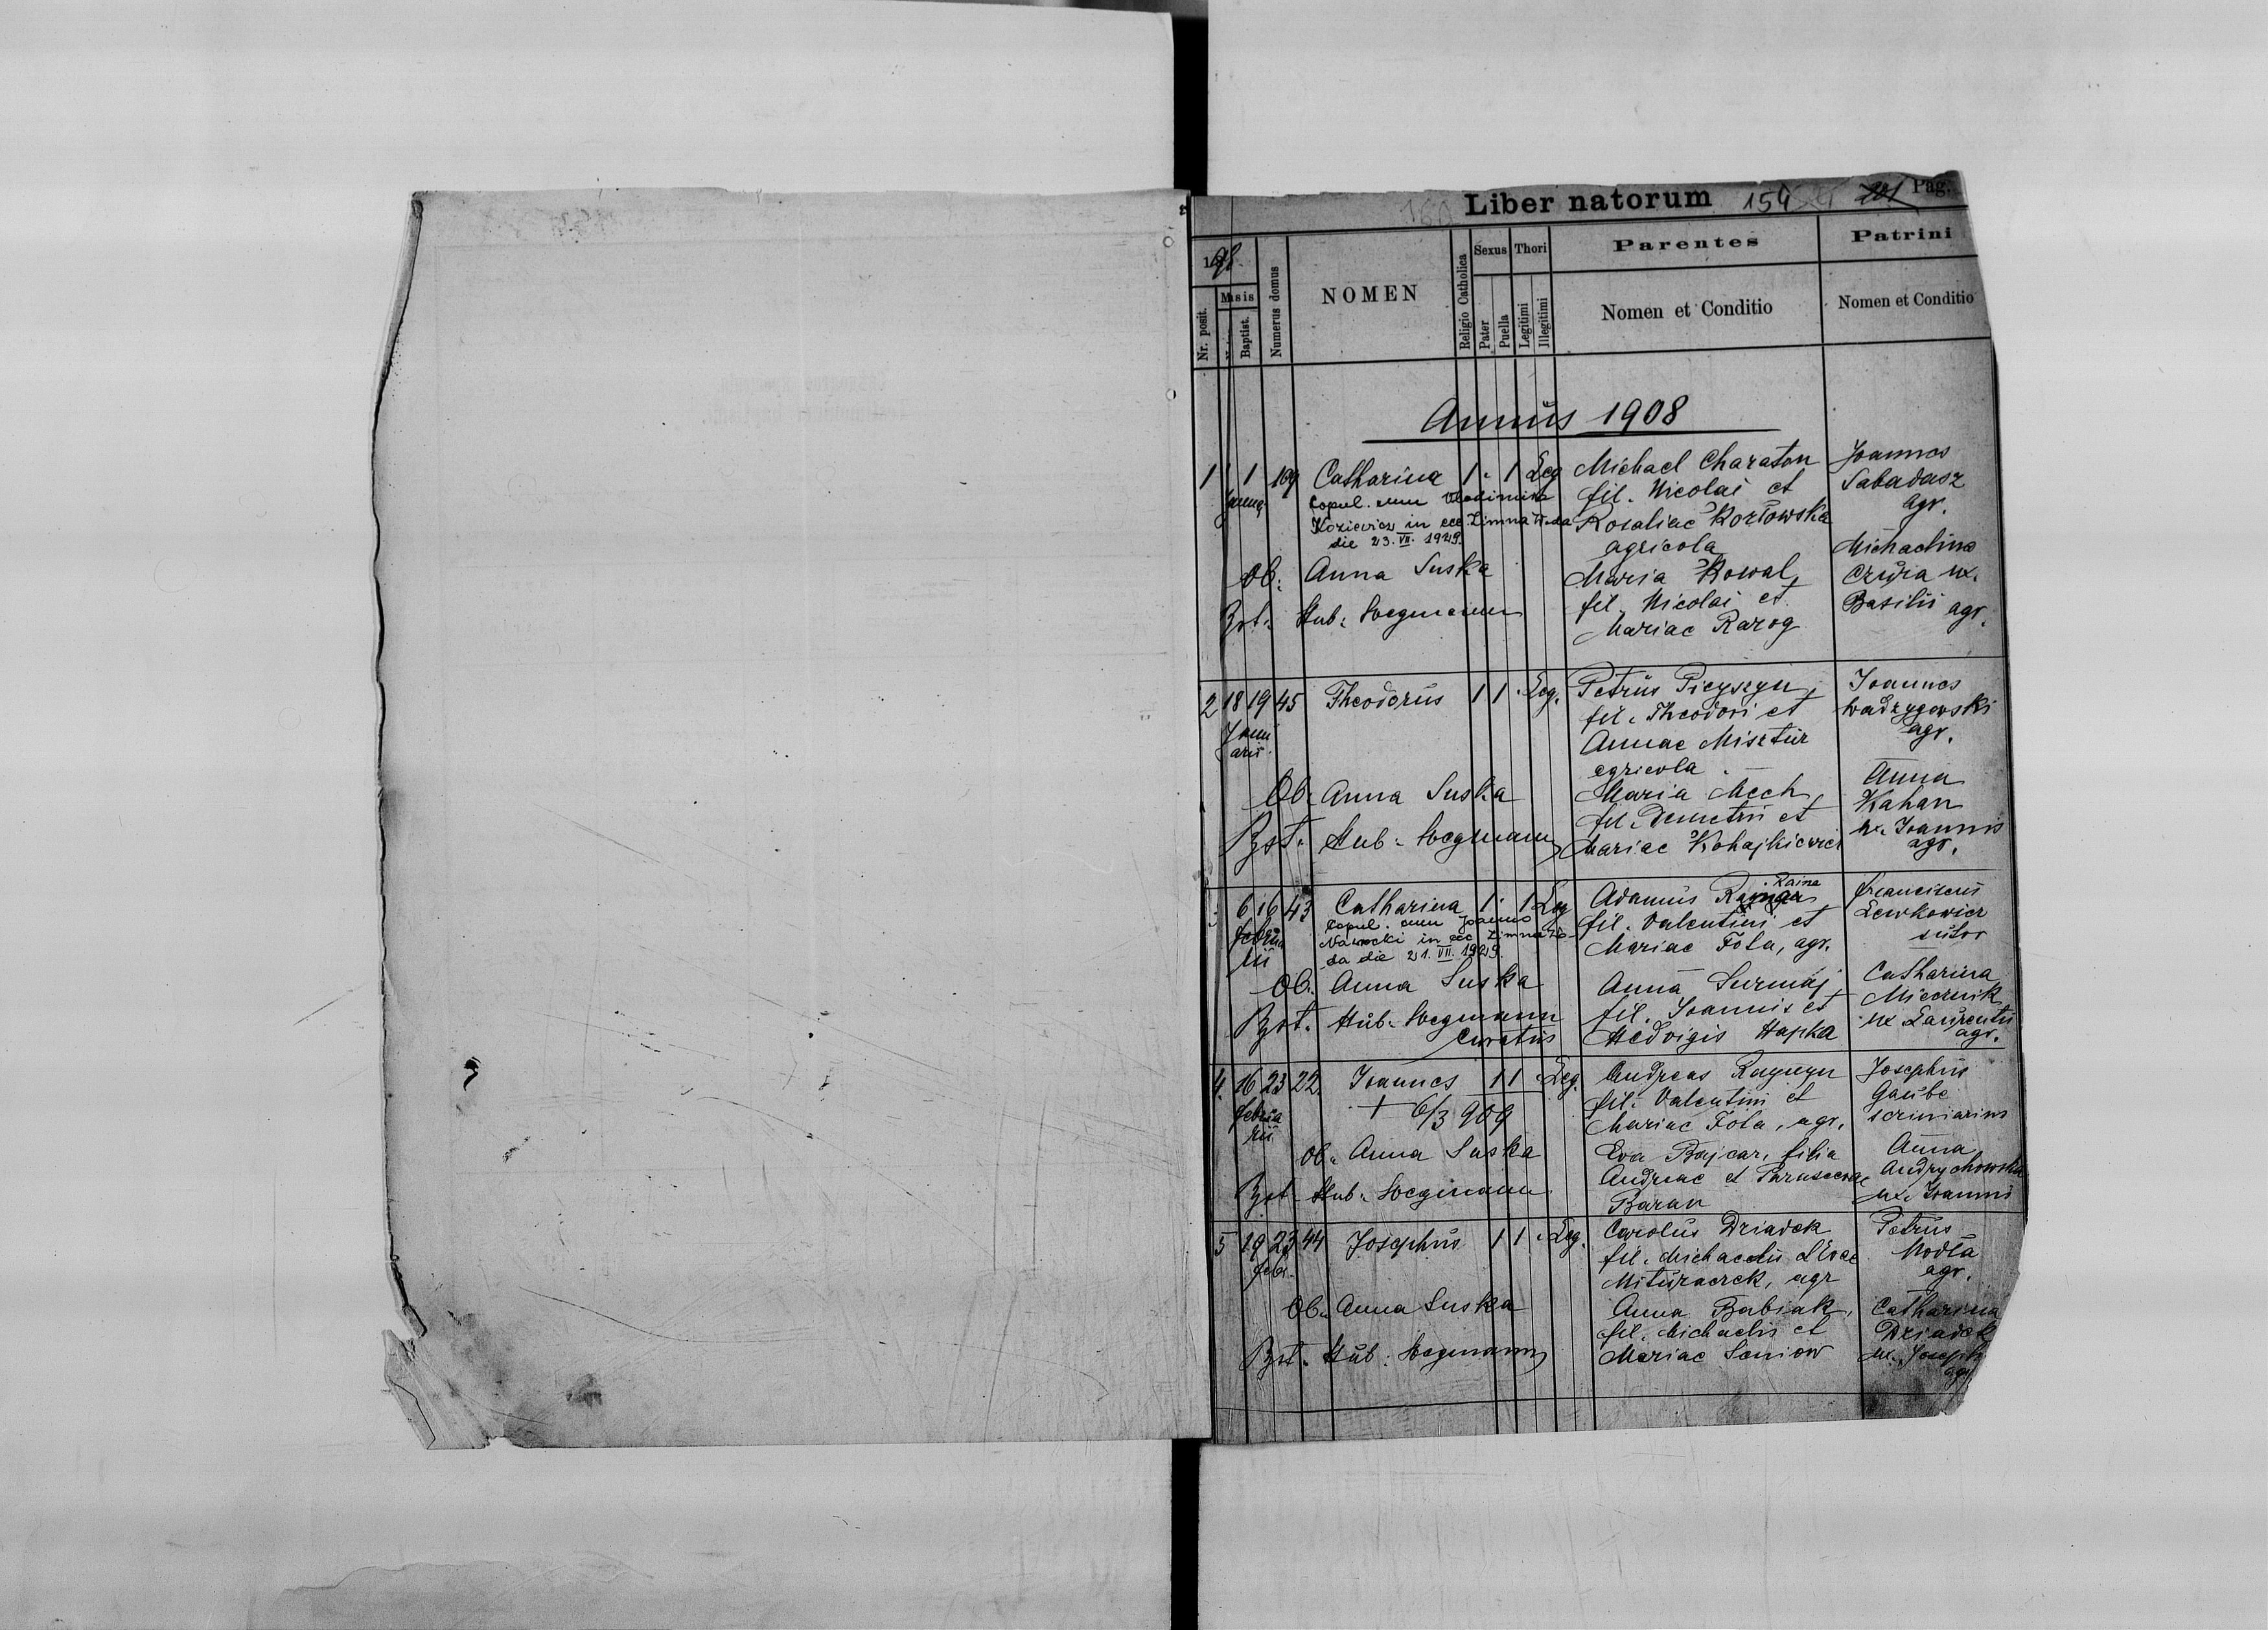 Liber natorum 154 Pag.
Nr. posit.
Mensis
Baptist.
Numerus domus
NOMEN
Religio Catholica
Sexus
Pater
Puella
Thori
Legitimi
Illegitimi
Parentes
Nomen et Conditio
Patrini
Nomen et Conditio
Annus 1908
1 1 109 Catharina 1 1 Leg
Copul. cum Vladimiro
in ecc. Zimna Woda
die 23. VII. 1929.
Ob: Anna Suska
Bpt. Hub. Wegmann
Michael Charaton
fil. Nicolai et
Rosaliae Kozłowska
agricola
Maria Kowal,
fil. Nicolai et
Mariae Rarog
Joannes
Sabadasz
agr.
Michaelina
ux.
Basilii agr.
2 18 19 45 Theodorus 1 1 Leg.
Janu
arii
Ob. Anna Suska
Bpt. Hub. Wegmann
Petrus
fil. Theodori et
Annae Misztur
agricola
Maria Mech,
fil. Demetrii et
Mariae
Joannes
agr.
Anna
Kahan
ux. Joannis
agr.
6 16 43 Catharina 1 1 Leg
Februa
rii
Copul. cum Joanne
Nawrocki in ecc Zimna Wo-
da die 21. VII. 1929.
Ob. Anna Suska
Bpt. Hub. Wegmann
Curatus
Adamus Raina
fil. Valentini et
Mariae Fola, agr.
Anna Surmaj,
fil. Joannis et
Hedvigis Hapka
Franciscus
Lewkowicz
sutor
Catharina
Miecznik
ux Laurentii
agr.
4. 16 23 22. Joannes 1 1 Leg.
Februa
rii
+ 6/3 909
Ob. Anna Suska
Bpt. Hub. Wegmann
Andreas
fil. Valentini et
Mariae Fola, agr.
Eva Bajcar, filia
Andreae et Parascevae
Baran
Josephus
Gaube
scriniarius
Anna
Andrychowska
ux. Joannis
5 19 23 44 Josephus 1 1 Leg.
Febr.
Ob. Anna Suska
Bpt. Hub. Wegmann
Carolus Dziadek
fil. Michaelis
agr
Anna Babiak,
fil. Michaelis et
Mariae Seniow
Petrus
Modła
agr.
Catharina
Dziadek
ux. Joseph
agr.